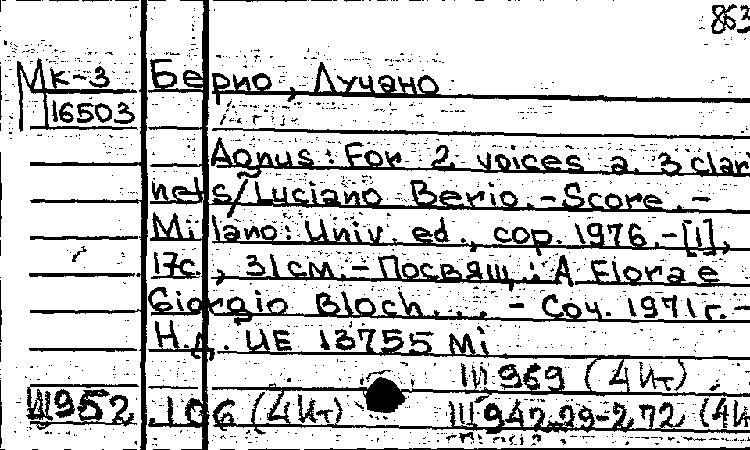 863
Мк-3 Берио, Лучано
16503
Agnus: For 2 voices a. 3 clar
nets/Luciano Berio.-Score.-
Milano: Univ. ed., cop. 1976.-[1],
17с., 31см.-Посвящ.: A Flora e
Giorgio Bloch... - Соч. 1971г.-
Н.д. UE 13755 Mi
Ш 969 (4Ит)
Ш952.106 (4Ит) Ш942.29-272 (4И